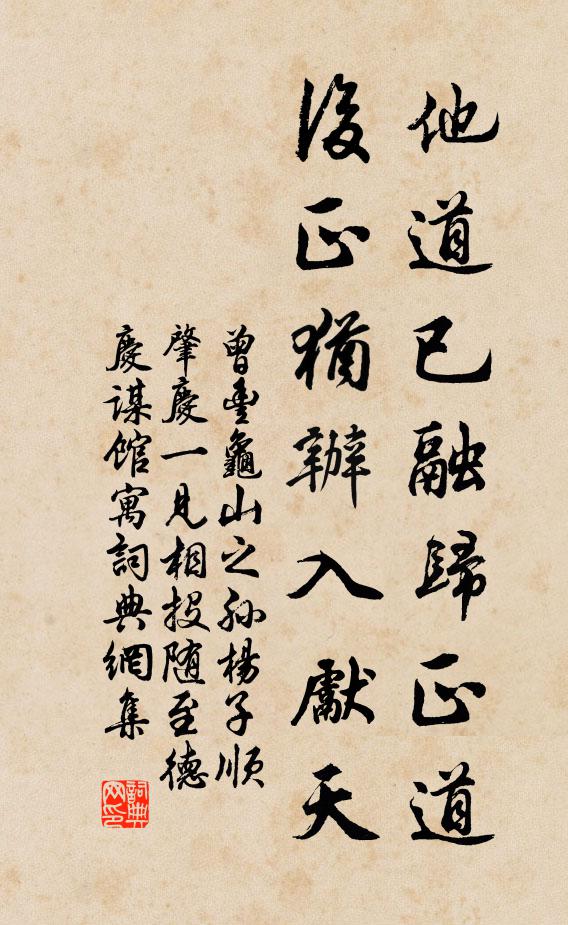 他道已融歸正道
後正猶辦入獻天
曾豊龜山之孙楊子順
肇慶一見相投随至德
慶謀馆寓詞典網集
詞典网印